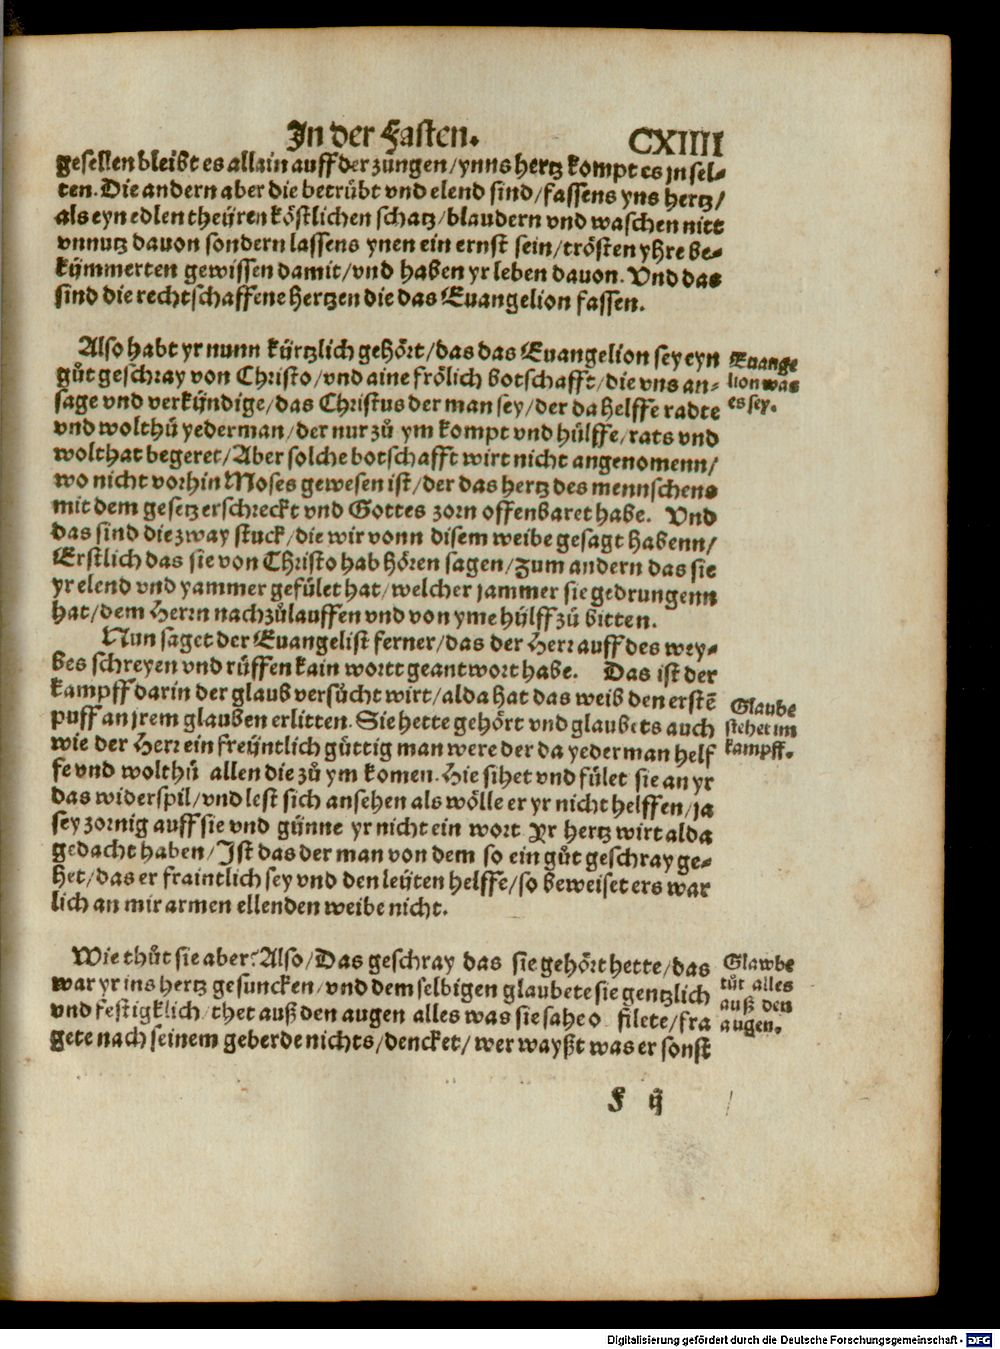 In der Fasten. CXIIII
gesellen bleibt es allain auff der zungen/ynns hertz kompt es jn sel-
ten. Die andern aber die betrübt vnd elend sind/fassens yns hertz/
als eyn edlen theüren köstlichen schatz/blaudern vnd waschen nitt
vnnutz dauon sondern lassens ynen ein ernst sein/trösten yhre be-
kümmerten gewissen damit/vnd haben yr leben dauon. Vnd das
sind die rechtschaffene hertzen die das Euangelion fassen.
Also habt yr nunn kürtzlich gehört/das das Euangelion sey eyn
gůt geschray von Christo/vnd aine frölich botschafft/die vns an-
sage vnd verkündige/das Christus der man sey/der da helffe radte
vnd wolthů yederman/der nur zů ym kompt vnd hülffe/rats vnd
wolthat begeret/Aber solche botschafft wirt nicht angenomenn/
wo nicht vorhin Moses gewesen ist/der das hertz des mennschens
mit dem gesetz erschreckt vnd Gottes zorn offenbaret habe. Vnd
das sind die zway stuck/die wir vonn disem weibe gesagt habenn/
Erstlich das sie von Christo hab hören sagen/Zum andern das sie
yr elend vnd yammer gefület hat/welcher jammer sie gedrungenn
hat/dem Herrn nachzůlauffen vnd von yme hülff zů bitten.
Euange
lion was
es sey.
Nun saget der Euangelist ferner/das der Herr auff des wey-
bes schreyen vnd rüffen kain wortt geantwort habe. Das ist der
kampff darin der glaub versůcht wirt/alda hat das weib den erstē
puff an jrem glauben erlitten. Sie hette gehört vnd glaubets auch
wie der Herr ein freüntlich güttig man were der da yederman helf
fe vnd wolthů allen die zů ym komen. Hie sihet vnd fület sie an yr
das widerspil/vnd lest sich ansehen als wölle er yr nicht helffen/ja
sey zornig auff sie vnd günne yr nicht ein wort Yr hertz wirt alda
gedacht haben/Ist das der man von dem so ein gůt geschray ge-
het/das er fraintlich sey vnd den leüten helffe/so beweiset ers war
lich an mir armen ellenden weibe nicht.
Glaube
stehet im
kampff.
Wie thůt sie aber? Also/Das geschray das sie gehört hette/das
war yr ins hertz gesuncken/vnd dem selbigen glaubete sie gentzlich
vnd festigklich/thet auß den augen alles was sie sahe o filete/fra
gete nach seinem geberde nichts/dencket/wer wayßt was er sonst
Glawbe
tůt alles
auß den
augen.
f ij
Digitalisierung gefördert durch die Deutsche Forschungsgemeinschaft - DFG